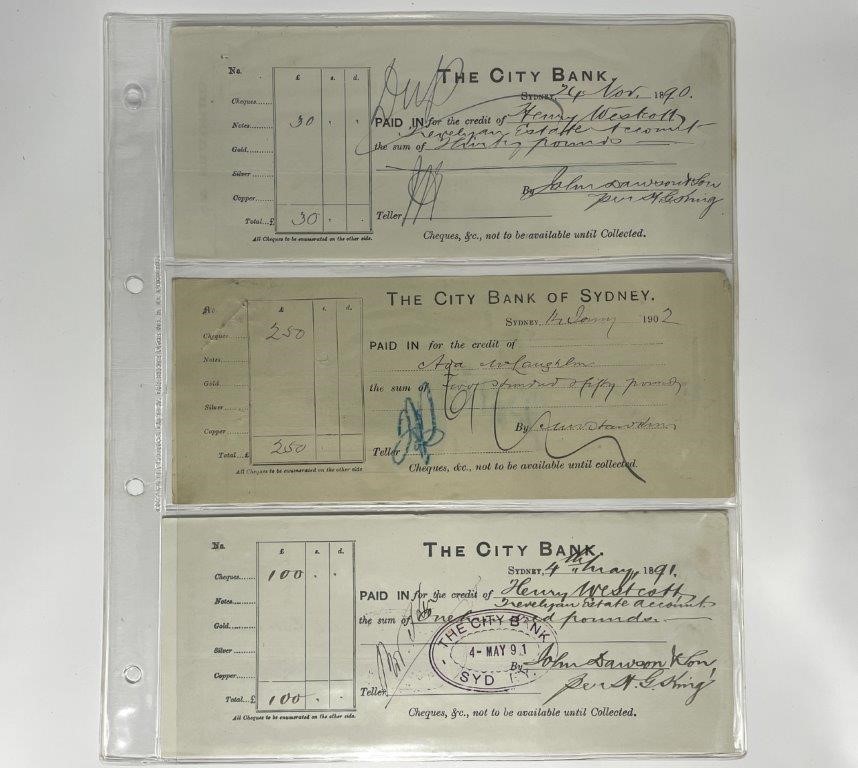 No.
£ s. d.
THE CITY BANK.
SYDNEY, 24 Nov. 1890.
Cheques......
Notes...... 30 . .
PAID IN for the credit of Henry Westcott
Trevelyan Estate Account
Gold......
the sum of Thirty pounds
Silver......
By John Dawson & Son
per H. G. King
Copper......
Teller
Total...£ 30 . .
All Cheques to be enumerated on the other side.
Cheques, &c., not to be available until Collected.
No.
£ s. d.
THE CITY BANK OF SYDNEY.
SYDNEY, 14 Jany 1902
Cheques...... 250
PAID IN for the credit of
Notes......
Ada McLaughlin
Gold......
the sum of Two hundred & fifty pounds
Silver......
By
Copper......
Teller
Total...£ 250
All Cheques to be enumerated on the other side
Cheques, &c., not to be available until collected.
No.
£ s. d.
THE CITY BANK.
SYDNEY, 4th May, 1891.
Cheques...... 100 . .
PAID IN for the credit of Henry Westcott
Notes......
Trevelyan Estate account
Gold......
the sum of One pounds.
THE CITY BANK
4-MAY 91
SYD Y.
Silver......
By John Dawson & Son,
per H. G. King
Copper......
Teller
Total...£ 100 . .
All Cheques to be enumerated on the other side.
Cheques, &c., not to be available until Collected.